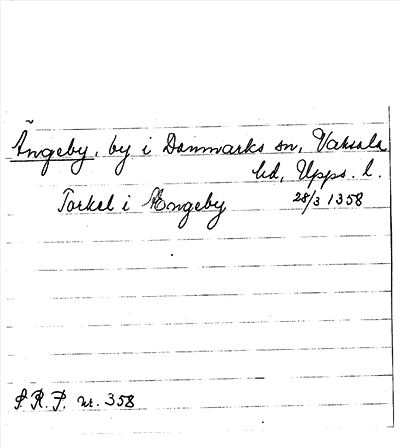 Ängeby, by i Danmarks sn, Vaksala
hd, Upps. l.
Torkel i Ængeby 28/3 1358
S. R. P. nr. 358